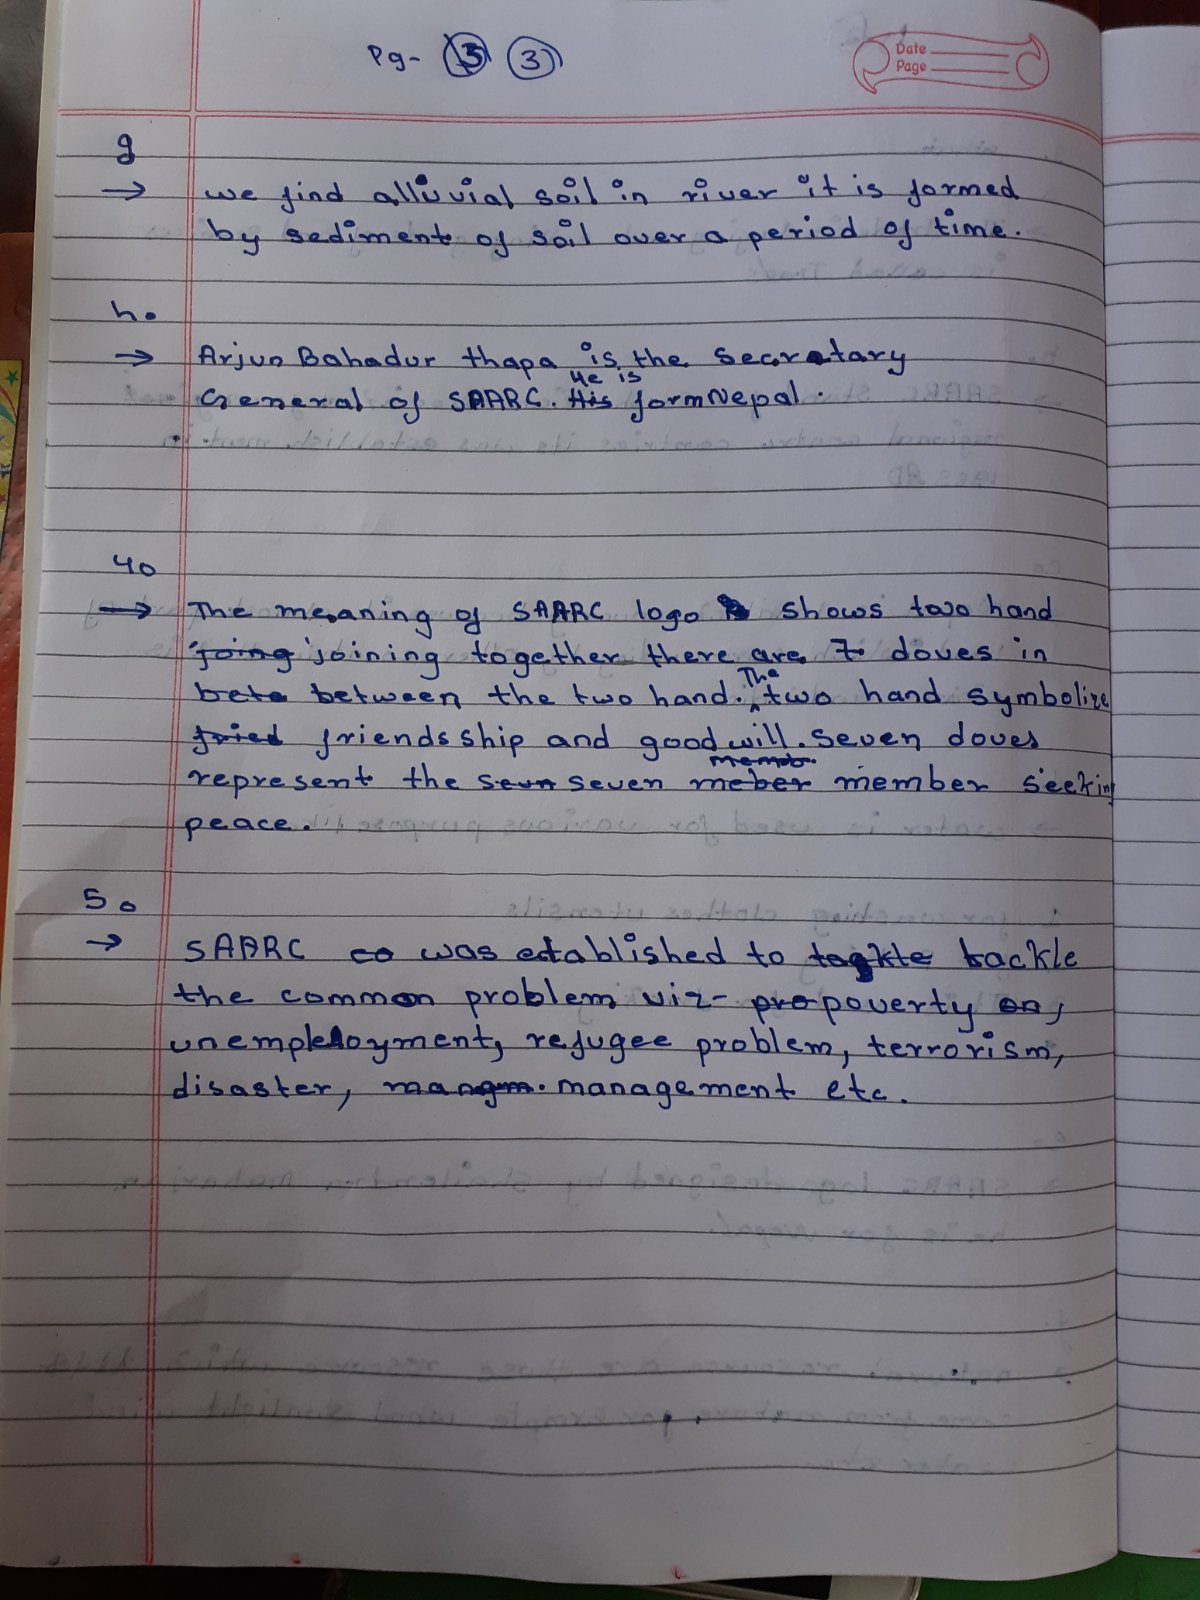 Pg- 3
Date
Page
g
→ we find alluvial soil in river it is formed
by sediment of soil over a period of time.
h.
→ Arjun Bahadur thapa is the Secretary
He is
General of SAARC. His form Nepal.
4.
→ The meaning of SAARC logo shows two hand
joing joining together there are 7 doves in
The
beto between the two hand. two hand symbolize
fried friends ship and good will. Seven doves
memb
represent the seun seven meber member seeking
peace.
5.
→ SAARC co was established to tackle
the common problem viz- pro poverty,
unemployment, refugee problem, terrorism,
disaster, mangm. management etc.